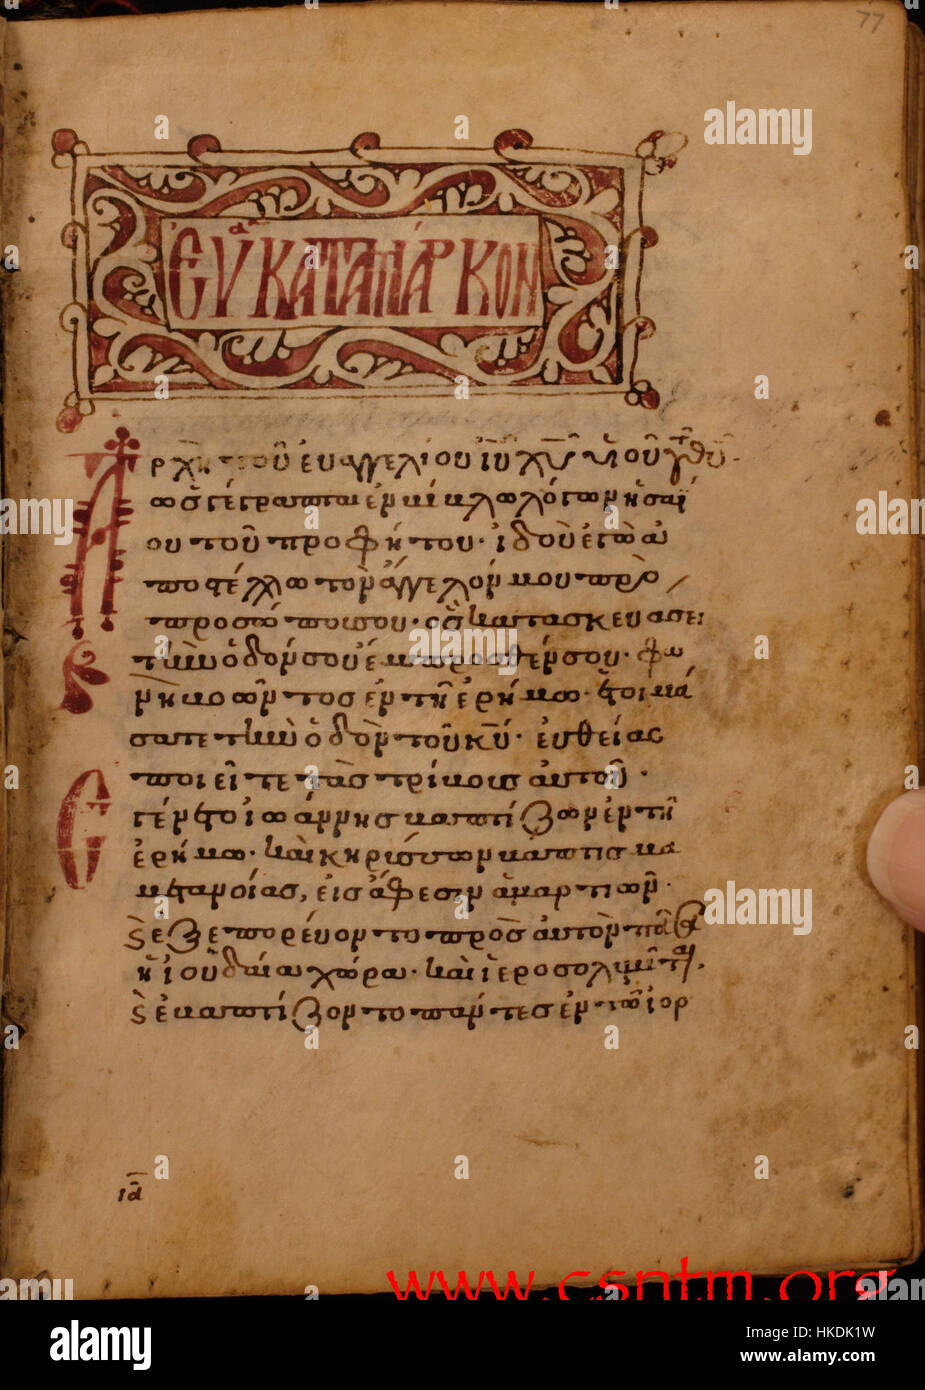 77
ΕΥΑ ΚΑΤΑ ΜΑΡΚΟΝ
Ἀρχὴ τοῦ εὐαγγελίου ἰῦ χῦ υἱοῦ τοῦ θῦ·
ὡς γέγραπται ἐν βίβλω λόγων ἡσαΐ
ου τοῦ προφήτου· ἰδοὺ ἐγὼ ἀ
ποστέλλω τὸν ἄγγελόν μου πρὸ
προσώπου σου· ὃς κατασκευάσει
τὴν ὁδόν σου ἔμπροσθέν σου· φω
νὴ βοῶντος ἐν τῆ ἐρήμω· ἑτοιμά
σατε τὴν ὁδὸν κῦ· εὐθείας
ποιεῖτε τὰς τρίβους αὐτοῦ·
Ἐγένετο ἰωάννης βαπτίζων ἐν τῆ
ἐρήμω· καὶ κηρύσσων βάπτισμα
μετανοίας, εἰς ἄφεσιν ἁμαρτιῶν·
καὶ ἐξεπορεύοντο πρὸς αὐτὸν πᾶσα
ἡ ἰουδαία χώρα· καὶ ἱεροσολυμῖται·
καὶ ἐβαπτίζοντο πάντες ἐν τῶ ἰορ
ιδ
www.csntm.org
alamy
Image ID: HKDK1W
www.alamy.com